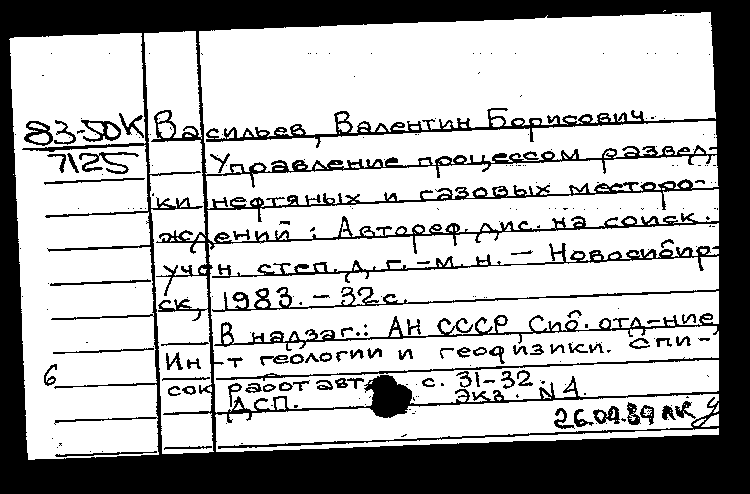 83-50К Васильев, Валентин Борисович.
7125 Управление процессом развед-
ки нефтяных и газовых месторо-
ждений : Автореф. дис. на соиск.
учен. степ. д. г.-м. н. — Новосибир-
ск, 1983. - 32 с.
В надзаг.: АН СССР, Сиб. отд-ние,
Ин-т геологии и геофизики. Спи-
6 сок работ авт. с. 31-32.
ДСП. Экз. N 4.
26.04.89